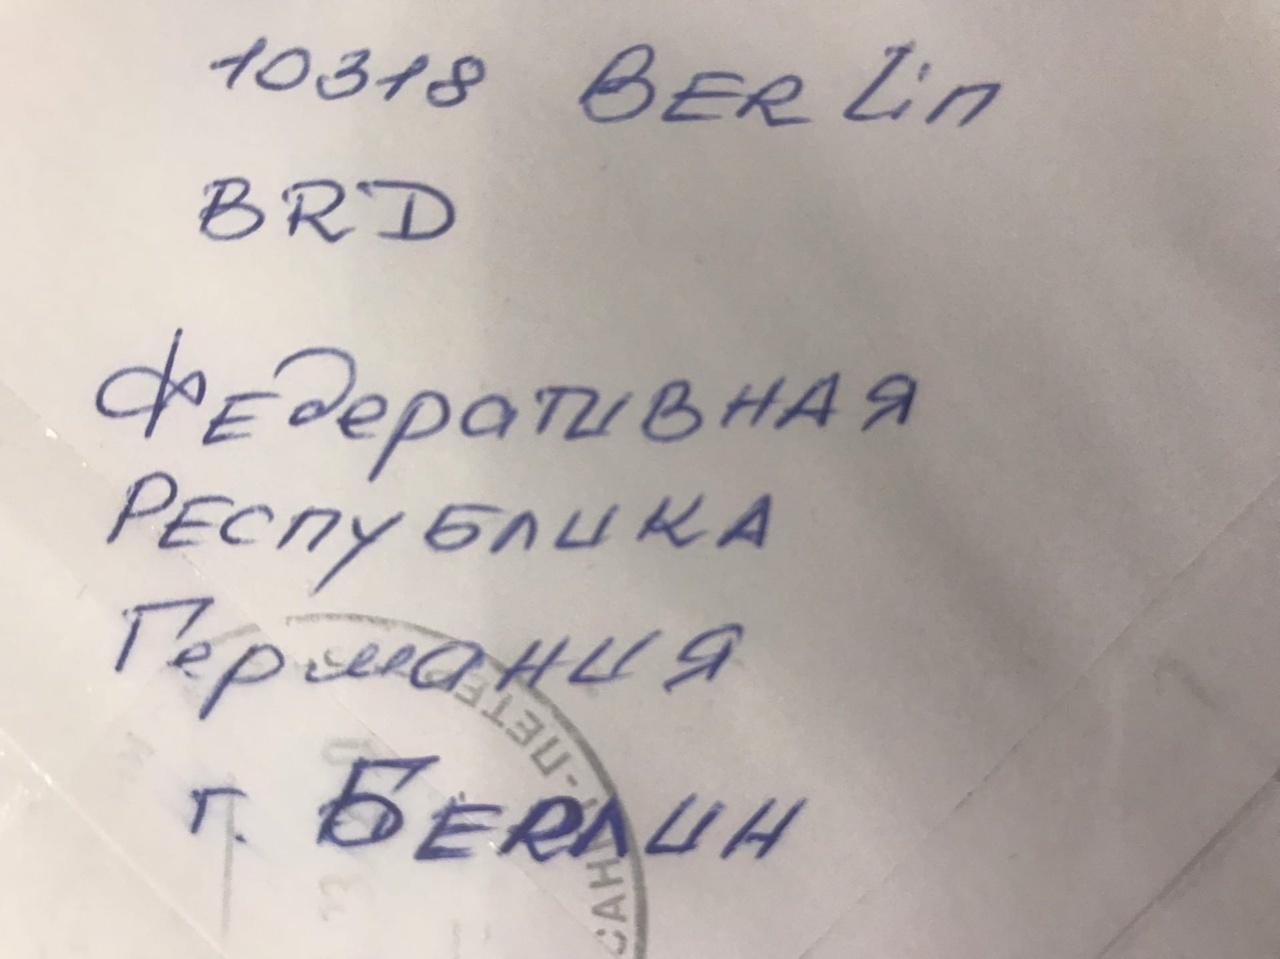 10318 BERLin
BRD
ФЕдеративНАЯ
РЕСПУБЛИКА
Германия
г. БЕRЛИН
САНКТ-ПЕТЕР